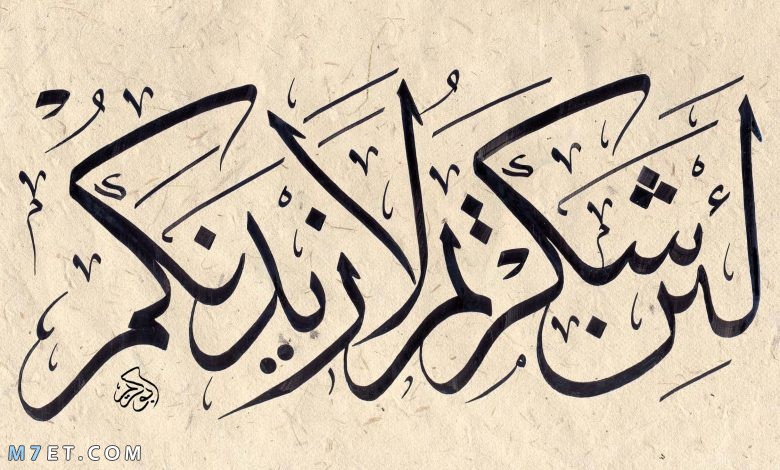 لئن شكرتم لأزيدنكم
M7ET.COM